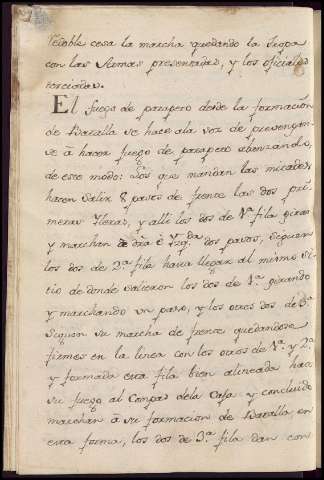 redoble cesa la marcha quedando la Tropa
con las Armas presentadas, y los oficiales
terciadas.
El fuego de parapeto desde la formacion
de Batalla se hace ala voz de prevengan-
se â hacer fuego de parapeto abanzandolo,
de este modo: Los que mandan las mitades,
hacen salir 8 pasos de frente las dos pri
meras Yleras, y alli los dos de 1ª fila giran
y marchan dra è Yzqda dos pasos, siguen
los dos de 2ª fila hasta llegar al mismo si-
tio de donde salieron los dos de 1ª girando
y marchando un paso, y los otros dos de 3ª
siguen su marcha de frente quedandose
firmes en la linea con los otros de 1ª y 2ª
y formada esta fila bien alineada hace
su fuego al Compas dela Caja y concluido
marchan â su formacion de Batalla en
esta forma, los dos de 3ª fila dan con